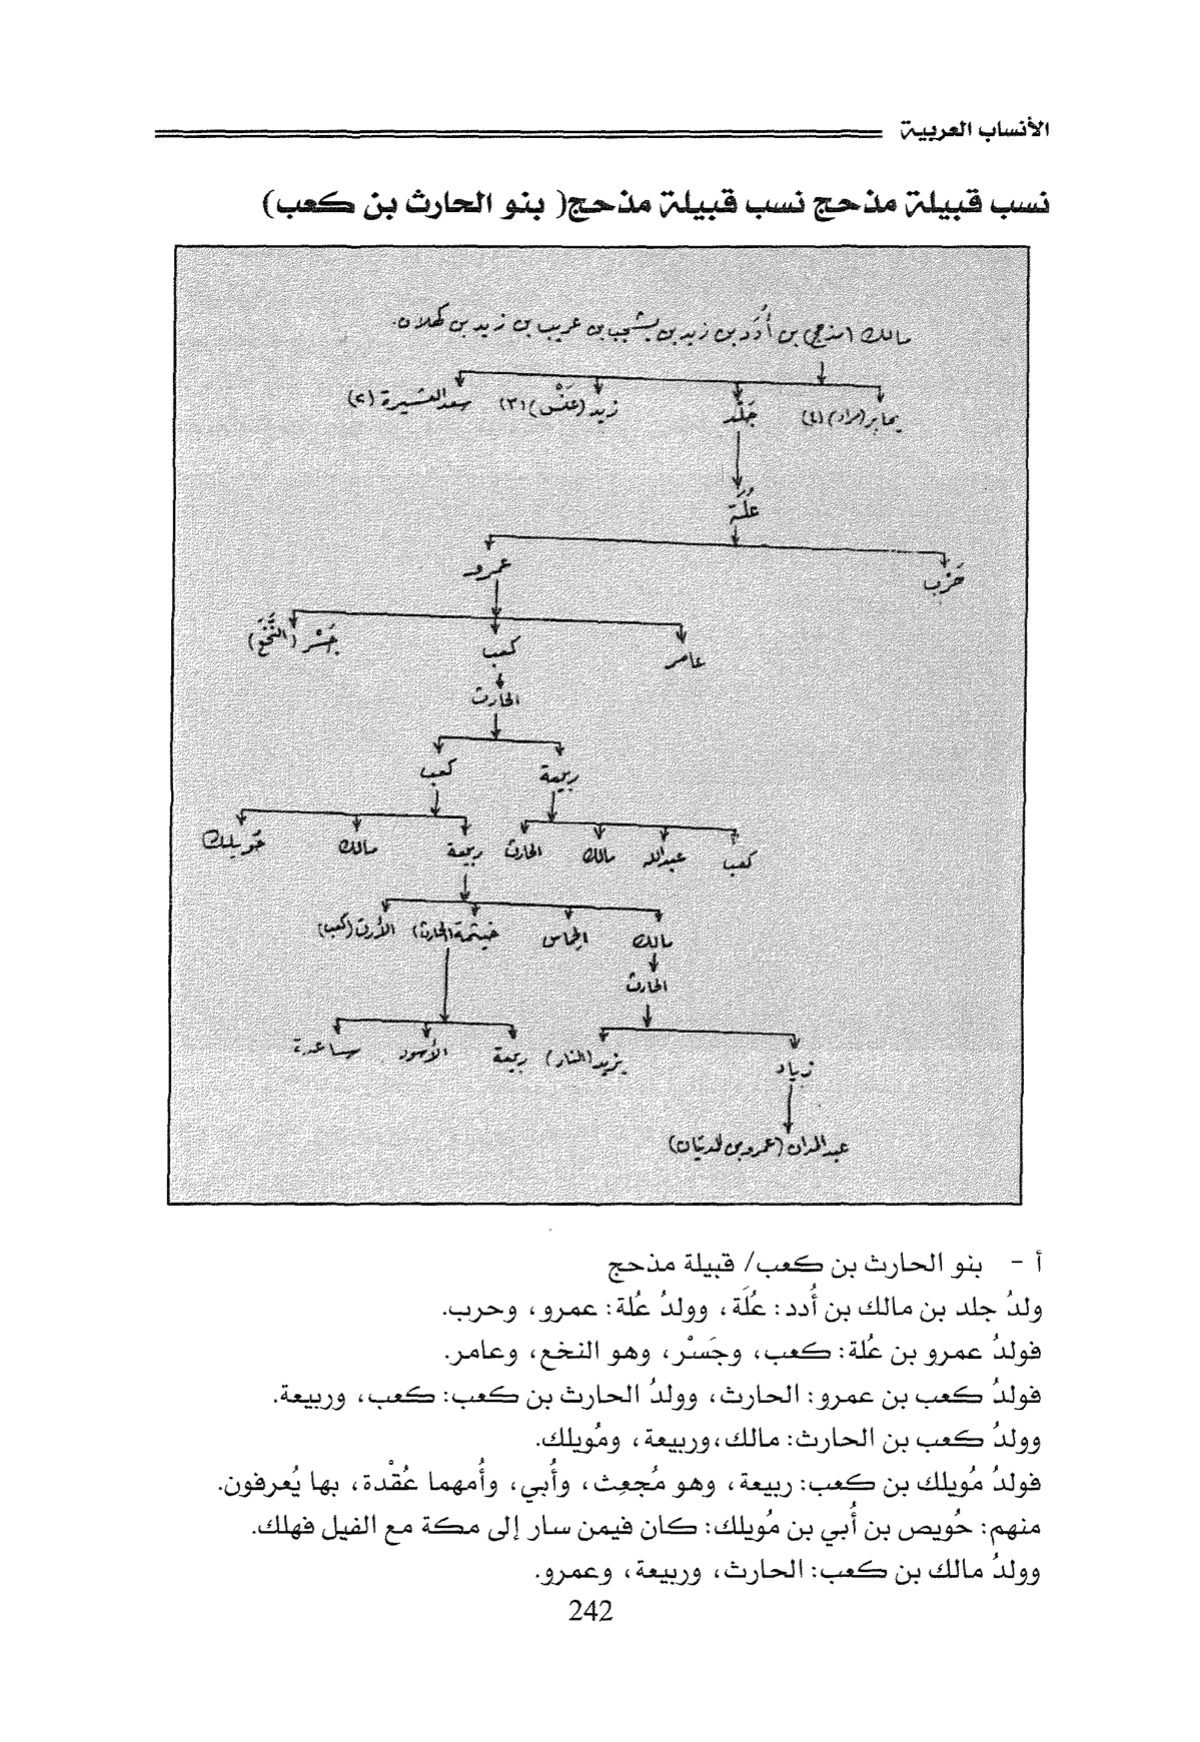 الأنساب العربية
نسب قبيلة مذحج نسب قبيلة مذحج( بنو الحارث بن كعب)
مالك (مذحج) بن أُدَد بن زيد بن يشجب بن عريب بن زيد بن كهلان.
يحابر (مراد) (٤) جَلْد زيد (عَنْس) (٣) سعد العشيرة (٢)
عُلَة
حَرْب عمرو
عامر كعب جَسْر (النَّخَع)
الحارث
ربيعة كعب
كعب عبدالله مالك الحارث ربيعة مالك مُويلك
مالك الحماس خيثمة (الحارث) الأرت (كعب)
الحارث
زياد يزيد (النار) ربيعة الأسود ساعدة
عبدالمدان (عمرو بن الديّان)
أ - بنو الحارث بن كعب/ قبيلة مذحج
ولدُ جلد بن مالك بن أُدد: عُلَة، وولدُ عُلة: عمرو، وحرب.
فولدُ عمرو بن عُلة: كعب، وجَسْر، وهو النخع، وعامر.
فولدُ كعب بن عمرو: الحارث، وولدُ الحارث بن كعب: كعب، وربيعة.
وولدُ كعب بن الحارث: مالك، وربيعة، ومُويلك.
فولدُ مُويلك بن كعب: ربيعة، وهو مُجعِث، وأُبي، وأُمهما عُقْدة، بها يُعرفون.
منهم: حُويص بن أُبي بن مُويلك: كان فيمن سار إلى مكة مع الفيل فهلك.
وولدُ مالك بن كعب: الحارث، وربيعة، وعمرو.
242